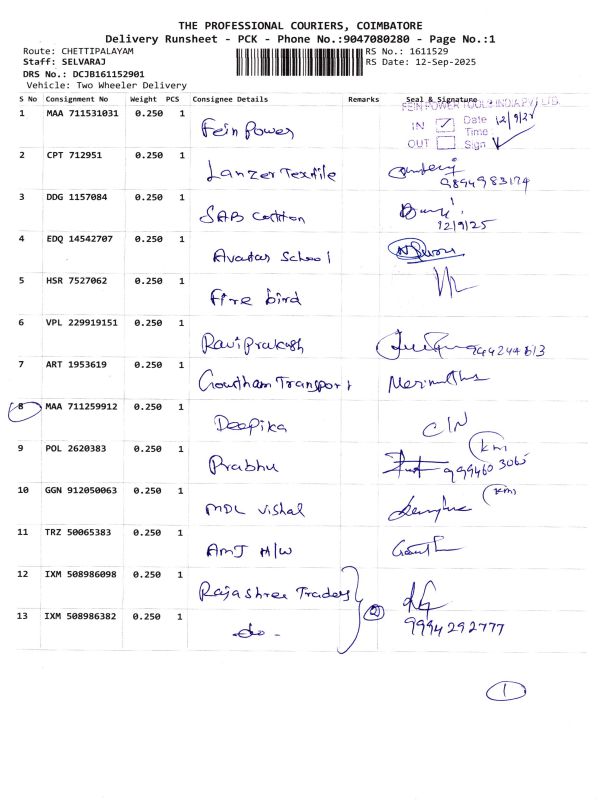 THE PROFESSIONAL COURIERS, COIMBATORE
Delivery Runsheet - PCK - Phone No.:9047080280 - Page No.:1
Route: CHETTIPALAYAM RS No.: 1611529
Staff: SELVARAJ RS Date: 12-Sep-2025
DRS No.: DCJB161152901
Vehicle: Two Wheeler Delivery
S No Consignment No Weight PCS Consignee Details Remarks Seal & Signature
FEIN POWER TOOLS INDIA PVT LTD.
1 MAA 711531031 0.250 1 Fein Power IN Date 12/9/25
Time
OUT Sign
2 CPT 712951 0.250 1 Lanzer Textile
9894983174
3 DDG 1157084 0.250 1 SAB Cotton
12/9/25
4 EDQ 14542707 0.250 1 Avatar School
5 HSR 7527062 0.250 1 Fire bird
6 VPL 229919151 0.250 1 Raviprakash
7 ART 1953619 0.250 1 Gowtham Transport
8 MAA 711259912 0.250 1 Deepika C/N
9 POL 2620383 0.250 1 Prabhu
10 GGN 912050063 0.250 1 MDL Vishal
11 TRZ 50065383 0.250 1 AMJ H/W
12 IXM 508986098 0.250 1 Rajashree Traders
2
13 IXM 508986382 0.250 1 -do- 9994292777
1